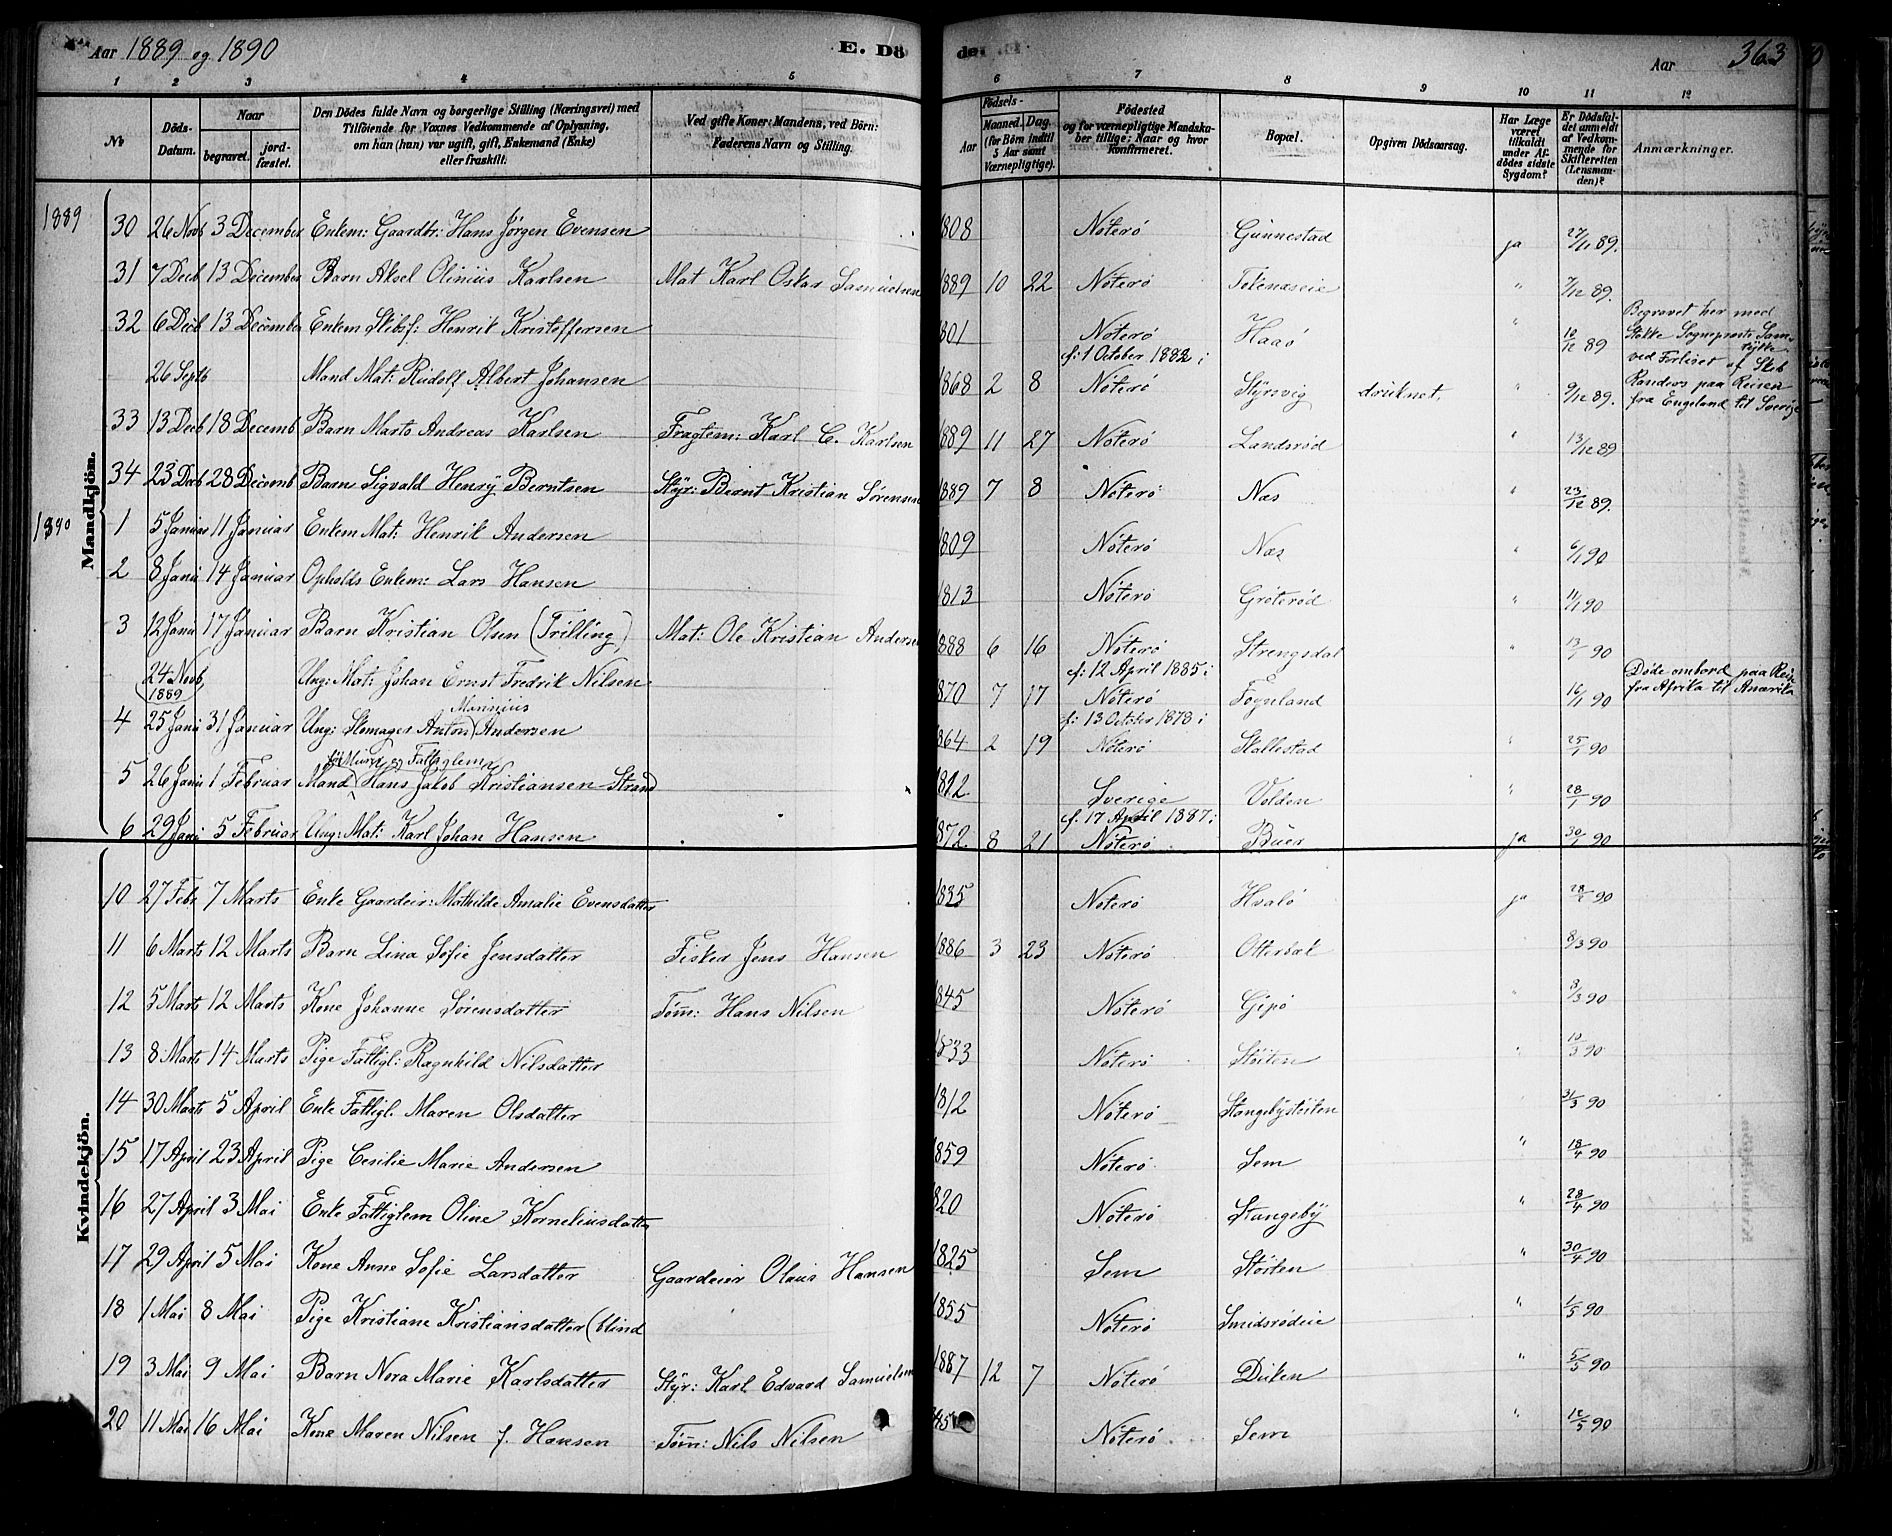 Aar 1889 og 1890 E. Dö de. Aar 363
1 2 3 4 5 6 7 8 9 10 11 12
No Döds-Datum. Naar begravet. jord-fæstet. Den Dödes fulde Navn og borgerlige Stilling (Næringsvei) med Tilföiende for Voxnes Vedkommende af Oplysning, om han (hun) var ugift, gift, Enkemand (Enke) eller fraskilt. Ved gifte Koner: Mandens, ved Börn: Faderens Navn og Stilling. Födsels- Aar Maaned. Dag. (for Börn indtil 5 Aar samt Værnepligtige). Födested og for værnepligtige Mandskaber tillige: Naar og hvor Konfirmeret. Bopæl. Opgiven Dödsaarsag. Har Læge været tilkaldt under Afdödes sidste Sygdom? Er Dödsfaldet anmeldt af Vedkommende for Skifteretten (Lensmanden)? Anmærkninger.
Mandkjön.
1889 30 26 Novb 3 December Enkem: Gaardbr: Hans Jørgen Evensen 1808 Nøterø Gunnestad ja 27/11 89.
31 7 Decb 13 December Barn Aksel Olinius Karlsen Mat Karl Oskar Samuelsen 1889 10 22 Nøterø " 7/12 89.
32 6 Decb 13 December Enkem Skibsf: Henrik Kristoffersen 1801 Nøterø Haaø " 12/12 89 Begravet her med Stokke Sogneprests Samtykke
26 Septb Mand Mat: Rudolf Albert Johansen 1868 2 8 f: 1 October 1882 i Nøterø Styrsvig druknet. " 9/12 89. ved Forliset af Skib Randers paa Reisen fra Engeland til Sverige
33 13 Decb 18 Decemb Barn Marts Andreas Karlsen Fragtem: Karl C. Karlsen 1889 11 27 Nøterø Landsrød " 13/12 89
34 23 Decb 28 Decemb Barn Sigvald Henry Berntsen Styr: Bernt Kristian Sørensen 1889 7 8 Nøterø Næs " 23/12 89.
1890 1 5 Januar 11 Januar Enkem Mat: Henrik Andersen 1809 Nøterø Næs " 6/1 90
2 8 Janu 14 Januar Opholds Enkem: Lars Hansen 1813 Nøterø Grøterød " 11/1 90
3 12 Janu 17 Januar Barn Kristian Olsen (Trilling) Mat: Ole Kristian Andersen 1888 6 16 Nøterø Strengsdal " 13/1 90
24 Novb (1889) Ung: Mat: Johan Ernst Fredrik Nilsen 1870 7 17 f: 12 April 1885 i Nøterø Fognland 16/1 90 Døde ombord paa Reise fra Afrika til Amerika
4 25 Janu 31 Januar Ung: Skomager Anton Mannius Andersen 1864 2 19 f: 13 October 1878 i Nøterø Skallestad " 25/1 90
5 26 Janu 1 Februar Mand Murer og Fattiglem Hans Jakob Kristiansen Strand 1822 Sverige Volden " 28/1 90
6 29 Janu 5 Februar Ung: Mat: Karl Johan Hansen 1872. 8 21 f: 17 April 1887 i Nøterø Buer ja 30/1 90
Kvindekjön.
10 27 Febr 7 Marts Enke Gaardeier: Mathilde Amalie Evensdatter 1835 Nøterø Hvalø ja 28/2 90
11 6 Marts 12 Marts Barn Lina Sofie Jensdatter Fisker Jens Hansen 1886 3 23 Nøterø Otterbæk 8/3 90
12 5 Marts 12 Marts Kone Johanne Sørensdatter Tøm: Hans Nilsen 1845 Nøterø Gipø " 8/3 90
13 8 Marts 14 Marts Pige Fattigl: Ragnhild Nilsdatter 1833 Nøterø Støiten " 10/3 90
14 30 Marts 5 April Enke Fattigl. Maren Olsdatter 1812 Nøterø Stangebystøiten 31/3 90
15 17 April 23 April Pige Cecilie Marie Andersen 1859 Nøterø Sem " 18/4 90
16 27 April 3 Mai Enke Fattiglem Oline Korneliusdatter 1820 Nøterø Stangeby " 28/4 90
17 29 April 5 Mai Kone Anne Sofie Larsdatter Gaardeier Olaus Hansen 1825 Sem Støiten " 30/4 90
18 1 Mai 8 Mai Pige Kristiane Kristiansdatter (blind 1855 Nøterø Smidsrødeie " 1/5 90
19 3 Mai 9 Mai Barn Nora Marie Karlsdatter Styr: Karl Edvard Samuelsen 1887 12 7 Nøterø Duken " 5/5 90
20 11 Mai 16 Mai Kone Maren Nilsen f. Hansen Tøm: Nils Nilsen Nøterø Sem " 12/5 90